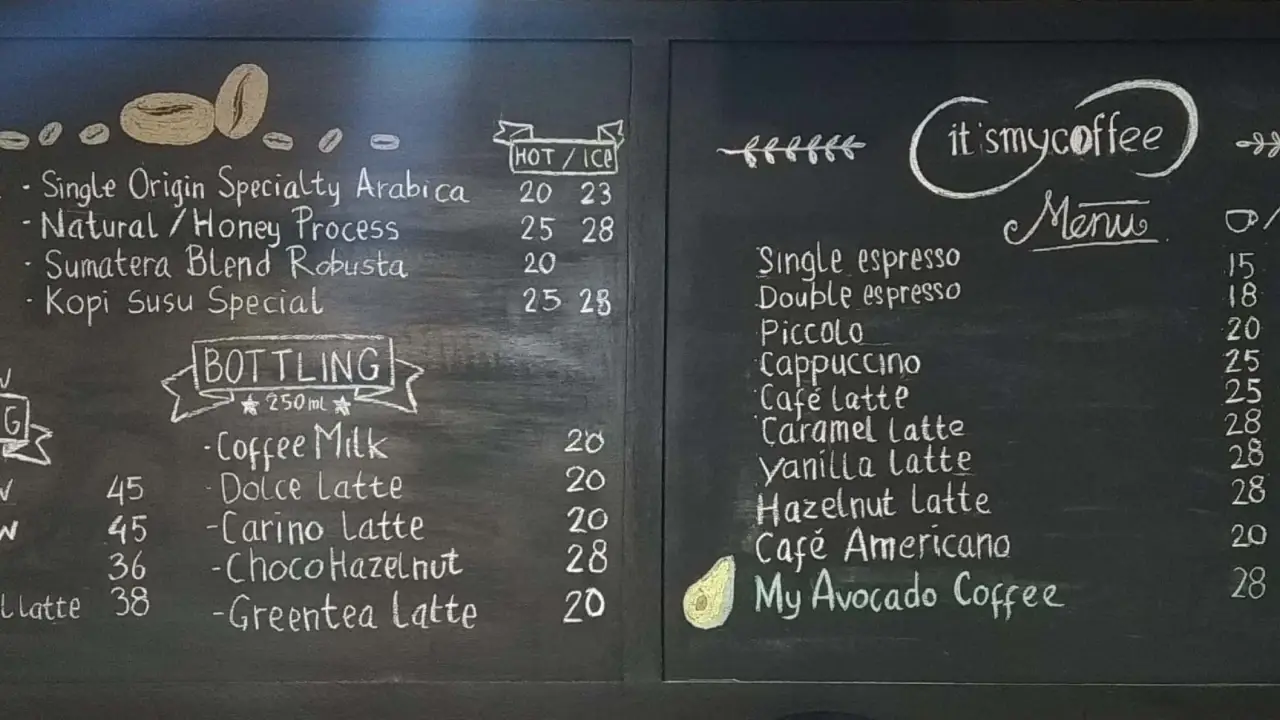 HOT / ICE
· Single Origin Specialty Arabica 20 23
· Natural / Honey Process 25 28
· Sumatera Blend Robusta 20
· Kopi Susu Special 25 28
BOTTLING
250ml
-Coffee Milk 20
· Dolce Latte 20
-Carino Latte 20
-Choco Hazelnut 28
-Greentea Latte 20
G
45
W 45
36
Latte 38
it'smycoffee
Menu
Single espresso 15
Double espresso 18
Piccolo 20
Cappuccino 25
Café latte 25
Caramel Latte 28
Vanilla Latte 28
Hazelnut Latte 28
Café Americano 20
My Avocado Coffee 28